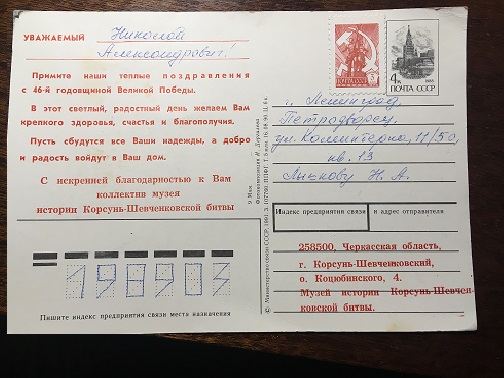 УВАЖАЕМЫЙ Николай
Александрович!
Примите наши теплые поздравления
с 46-й годовщиной Великой Победы.
В этот светлый, радостный день желаем Вам
крепкого здоровья, счастья и благополучия.
Пусть сбудутся все Ваши надежды, а добро
и радость войдут в Ваш дом.
С искренней благодарностью к Вам
коллектив музея
истории Корсунь-Шевченковской битвы
198903
Пишите индекс предприятия связи места назначения
9 Мая
© Министерство связи СССР, 1991.
4к
1988
ПОЧТА СССР
г. Ленинград,
Петродворец,
ул. Коминтерна, 11/50,
кв. 13
Н. А.
Индекс предприятия связи и адрес отправителя
258500, Черкасская область,
г. Корсунь-Шевченковский,
о. Коцюбинского, 4.
Музей истории Корсунь-Шевчен-
ковской битвы.